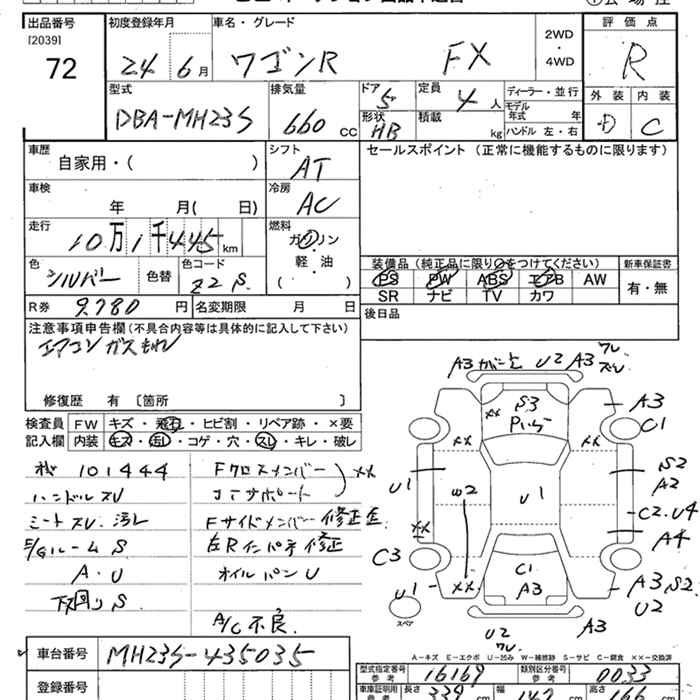 出品番号 初度登録年月 車名・グレード 評価点
[2039]
72 24 6月 ワゴンR FX 2WD・4WD R
型式 排気量 ドア 5 定員 4人 ディーラー・並行 外装 内装
DBA-MH23S 660 CC 形状 HB 積載 kg モデル年式 年 ハンドル 左・右 D C
車歴 シフト セールスポイント (正常に機能するものに限ります)
自家用・( ) AT
車検 冷房
年 月( 日) AC
走行 燃料
10万1千445km ガソリン
軽・油
( )
色 色替 色コード
シルバー Z2S
装備品 (純正品に限り○をつけてください) 新車保証書
PS PW ABS エアB AW 有・無
SR ナビ TV カワ
R券 9,780円 名変期限 月 日 後日品
注意事項申告欄(不具合内容等は具体的に記入して下さい)
エアコンガスもれ
修復歴 有 [箇所 ]
検査員 FW キズ・飛石・ヒビ割・リペア跡・×要
記入欄 内装 キズ・汚レ・コゲ・穴・スレ・キレ・破レ
101444 Fクロスメンバー ××
ハンドルスレ コアサポート
シートスレ.汚レ Fサイドメンバー修正含
E/Gルーム S 左Rインパネ修正
A.U オイルパンU
下回りS
A/C不良.
A3 ガビ U2 A3 ワレ スレ
S3 A3
××
C1
×× ××
S2
U1 W2 U1 A2
C2.U4
×× A4
C3 C1
U1 ×× A3 A3 S2
U2
スペア
U2 A3
ワレ
A-キズ E-エクボ U-凹み W-補修跡 S-サビ C-腐食 ××-交換済
車台番号 MH23S-435035
型式指定番号 参考 16169 類別区分番号 参考 0033
登録番号 車庫証明用 参考 長さ 339 cm 幅 147 cm 高さ 166 cm